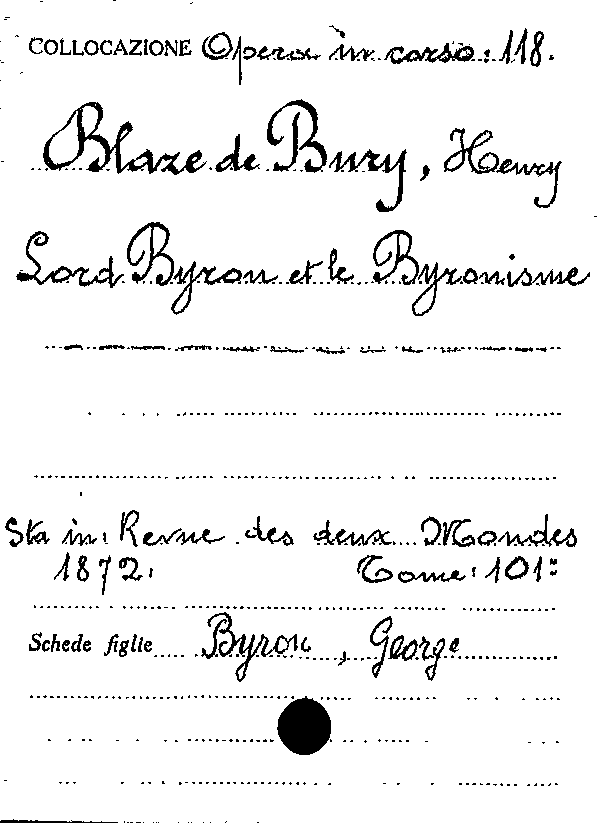 COLLOCAZIONE Opera in corso: 118.
Blaze de Bury, Henry
Lord Byron et le Byronisme
Sta in: Revue des deux Mondes
1872. Tome: 101:
Schede figlie Byron, George